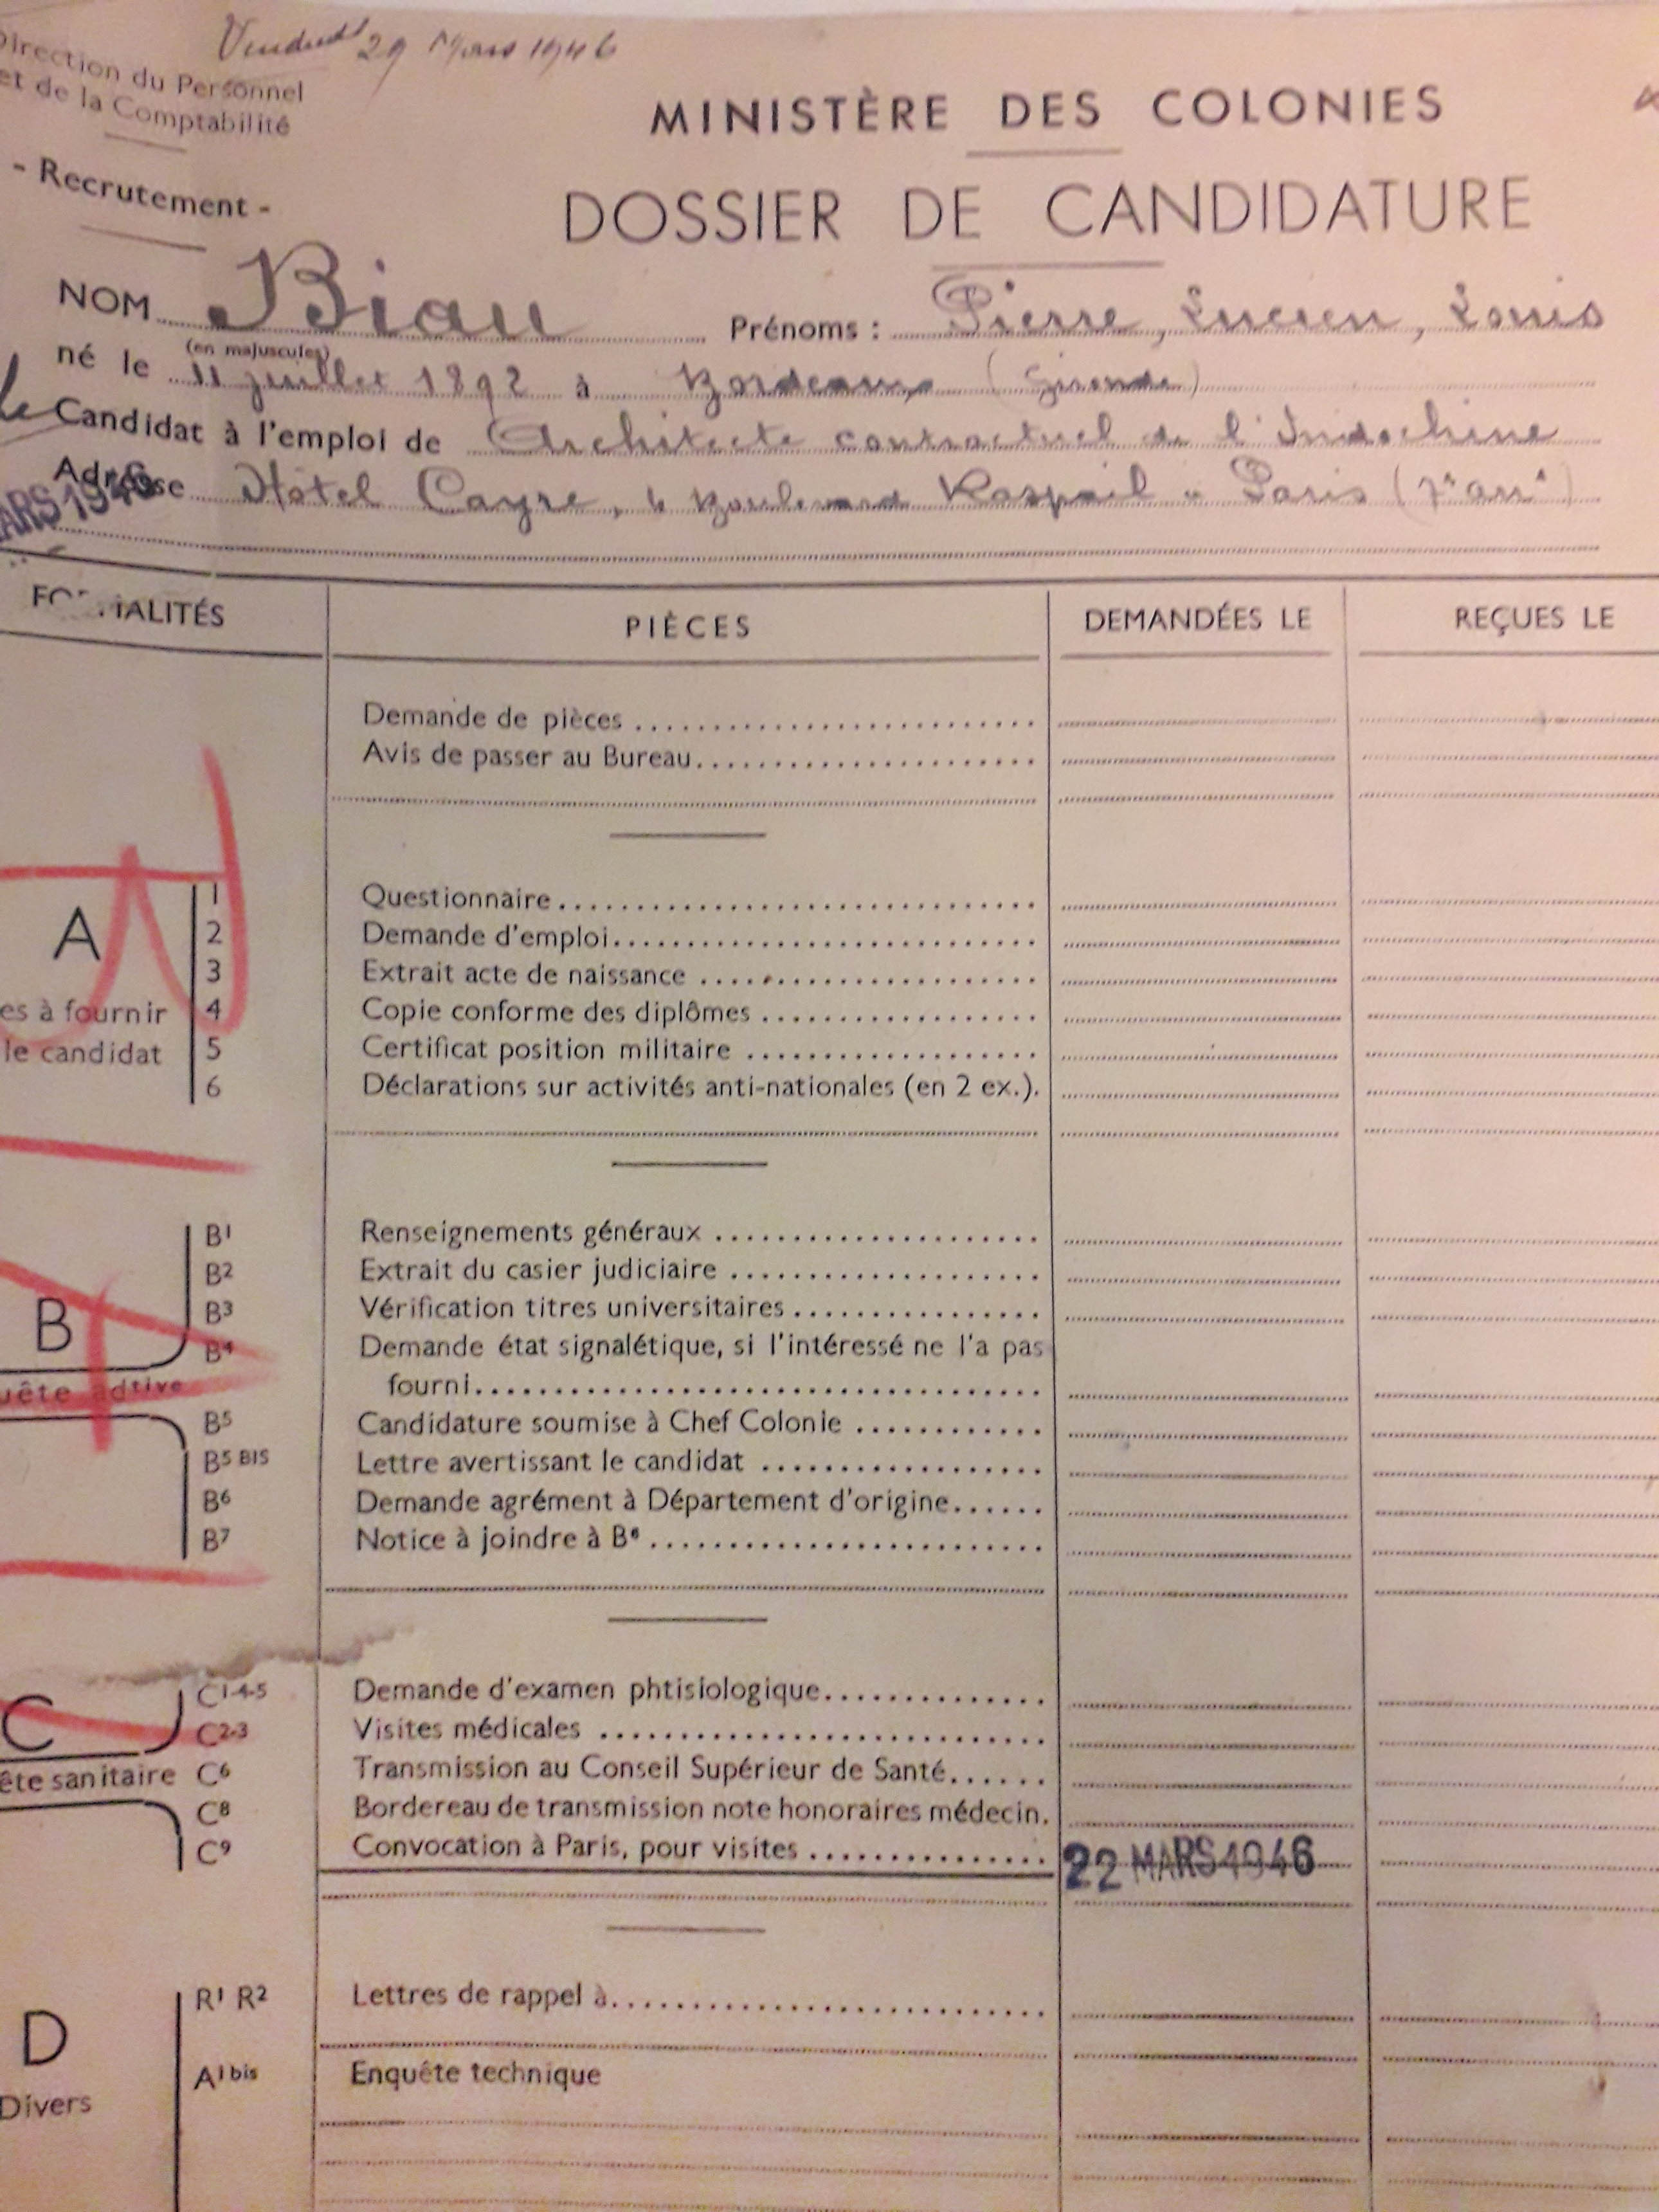 Vendredi 29 Mars 1946
Direction du Personnel
et de la Comptabilité
- Recrutement -
MINISTÈRE DES COLONIES
DOSSIER DE CANDIDATURE
NOM Biau Prénoms : Pierre, Lucien, Louis
(en majuscules)
né le 11 juillet 1892 à Bordeaux (Gironde)
Candidat à l'emploi de Architecte contractuel de l'Indochine
Adresse Hôtel Cayre, 4 Boulevard Raspail à Paris (7e arrt)
MARS 1946
FORMALITÉS PIÈCES DEMANDÉES LE REÇUES LE
Demande de pièces
Avis de passer au Bureau
1 Questionnaire
A 2 Demande d'emploi
3 Extrait acte de naissance
es à fournir 4 Copie conforme des diplômes
le candidat 5 Certificat position militaire
6 Déclarations sur activités anti-nationales (en 2 ex.).
B1 Renseignements généraux
B2 Extrait du casier judiciaire
B B3 Vérification titres universitaires
B4 Demande état signalétique, si l'intéressé ne l'a pas
uête adtive fourni
B5 Candidature soumise à Chef Colonie
B5 BIS Lettre avertissant le candidat
B6 Demande agrément à Département d'origine
B7 Notice à joindre à B6
C C1-4-5 Demande d'examen phtisiologique
C2-3 Visites médicales
ête sanitaire C6 Transmission au Conseil Supérieur de Santé
C8 Bordereau de transmission note honoraires médecin.
C9 Convocation à Paris, pour visites 22 MARS 1946
R1 R2 Lettres de rappel à
D
A1 bis Enquête technique
Divers